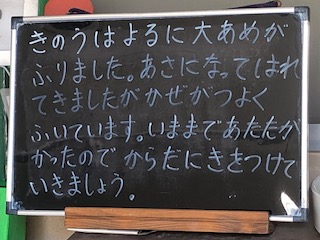 きのうはよるに大あめが
ふりました。あさになってはれ
てきましたがかぜがつよく
ふいています。いままであたたか
かったのでからだにきをつけて
いきましょう。